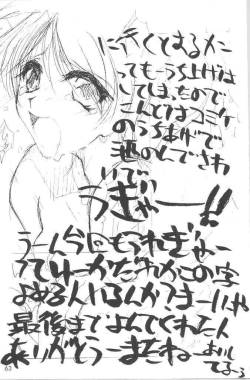 に行くとするかに
ってもーうち上げは
してしまったもので
こんどはコミケ
のうちあげで
酒のんでさわ
いで
うぎゃー!!
うーん今回もうれぎゃー
てゆーかだれかこの字
よめる人いるんかうまーいや
最後までよんでくれた人
ありがとうーまたねー
63